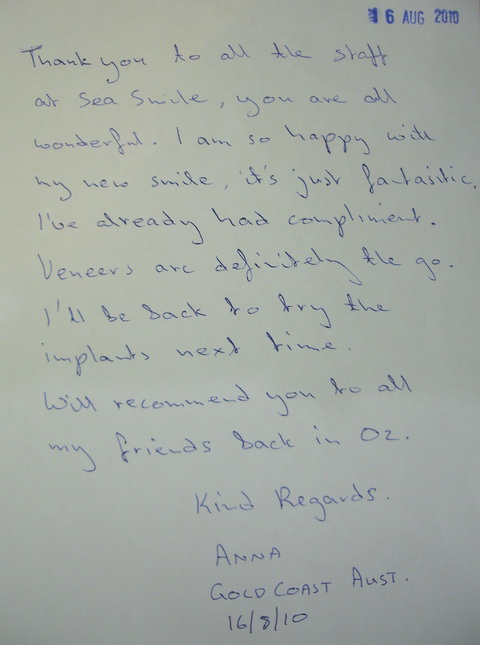 16 AUG 2010
Thank you to all the staff
at Sea Smile, you are all
wonderful. I am so happy with
my new smile, it's just fantasitic.
I've already had compliment.
Veneers are definitely the go.
I'll be back to try the
implants next time.
Will recommend you to all
my friends back in Oz.
Kind Regards.
ANNA
GOLD COAST AUST.
16/8/10